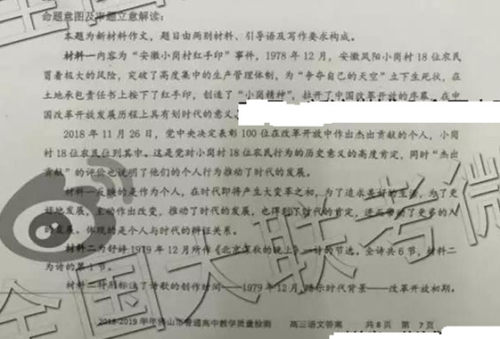 命题意图及审题立意解读：
本题为新材料作文，题目由两则材料、引导语及写作要求构成。
材料一内容为“安徽小岗村红手印”事件，1978年12月，安徽凤阳小岗村18位农民
冒着极大的风险，突破了高度集中的生产管理体制，为“争夺自己的天空”立下生死状，在
土地承包责任书上按下了红手印，创造了“小岗精神”，拉开了中国改革开放的序幕，在中
国改革开放发展历程上具有划时代的意义
2018年11月26日，党中央决定表彰100位在改革开放中作出杰出贡献的个人，小岗
村18位农民位列其中。这是党对小岗村18位农民行为的历史意义的高度肯定，同时“杰出
贡献”的评价也说明了他们的个人行为推动了时代的发展。
材料一反映的是作为个人，在时代即将产生大变革之初，为了追求美好的生活，为了更
好地发展，主动作出改变，推动了时代的发展，也得到了时代的肯定，进而带动了更多的人
的发展。体现的是个人与时代的辩证关系。
材料二为舒婷1979年12月所作《北京深秋的晚上》一诗的节选。全诗共6节，材料二
为诗的第1节。
材料二特别标注了诗歌的创作时间——1979年12月，揭示时代背景——改革开放初期。
2018-2019学年佛山市普通高中教学质量检测 高三语文答案 共8页 第7页
全国大联考微